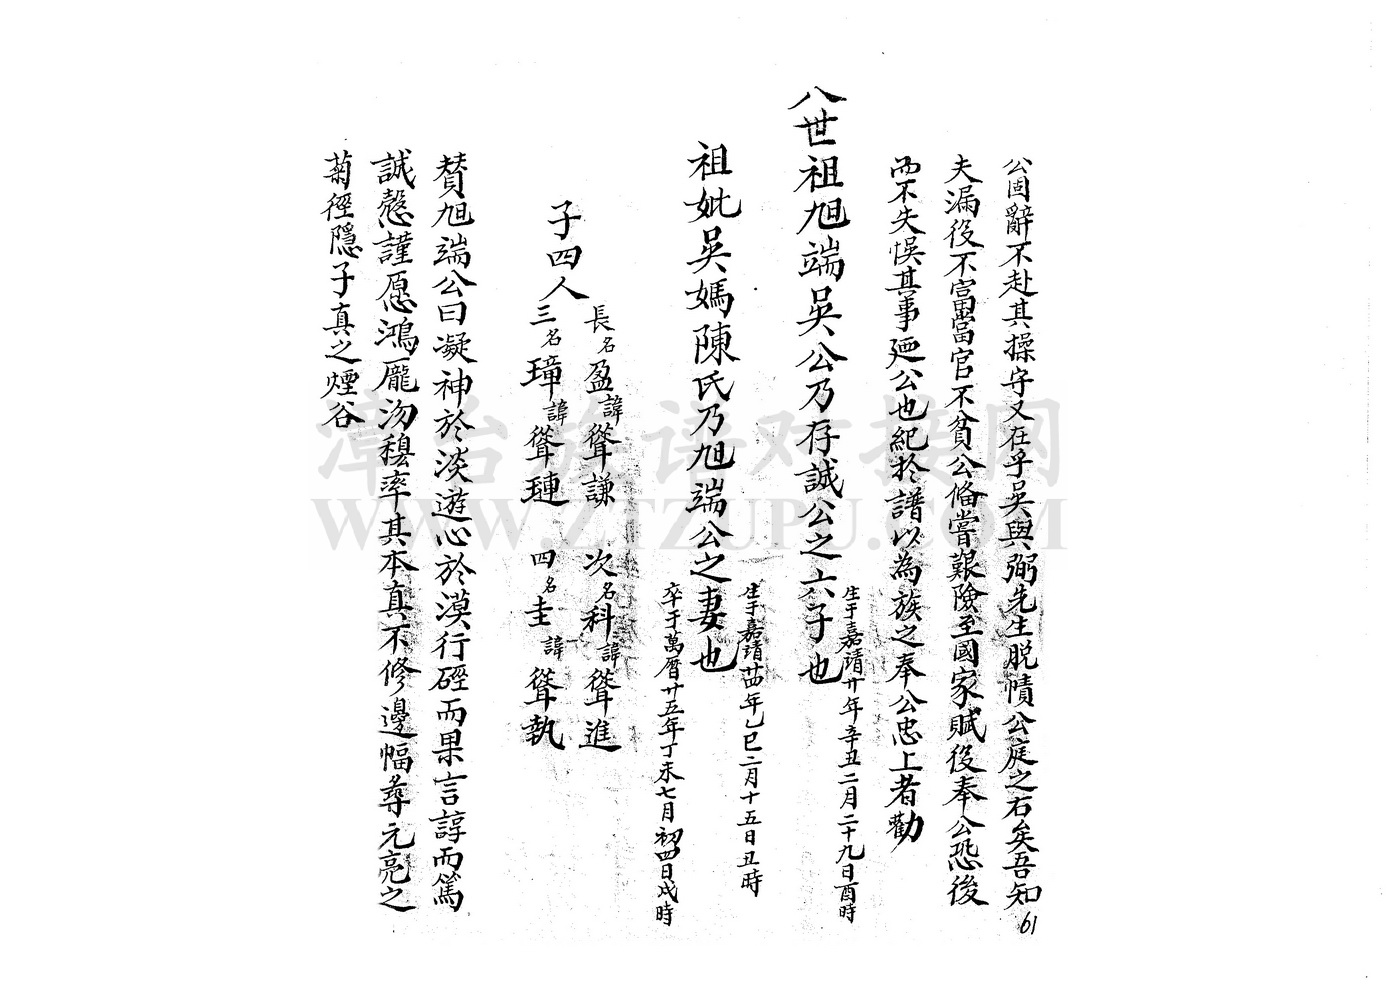 公固辭不赴其操守又在孚吳與弼先生脫幘公庭之右矣吾知
夫漏役不富當官不貧公俻嘗艱險至國家賦役奉公恐後
而不失悞其事廼公也紀於譜以為族之奉公忠上者勸
八世祖旭端吳公乃存誠公之六子也
生于嘉靖廿年辛丑二月二十九日酉時
祖妣吳媽陳氏乃旭端公之妻也
生于嘉靖廿四年乙巳二月十五日丑時
卒于萬曆廿五年丁未七月初四日戌時
子四人
長名盈諱聳謙 次名科諱聳進
三名璋諱聳璉 四名圭諱聳執
賛旭端公曰凝神於淡遊心於漠行硜而果言諄而篤
誠慤謹愿鴻龐沕穆率其本真不修邊幅尋元亮之
菊徑隱子真之煙谷
61
漳台族谱对接网
WWW.ZTZUPU.COM